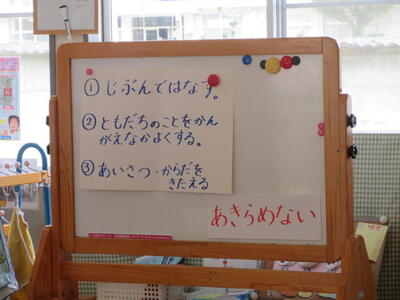 ① じぶんではなす。
② ともだちのことをかん
がえなかよくする。
③ あいさつ・からだを
きたえる
あきらめない